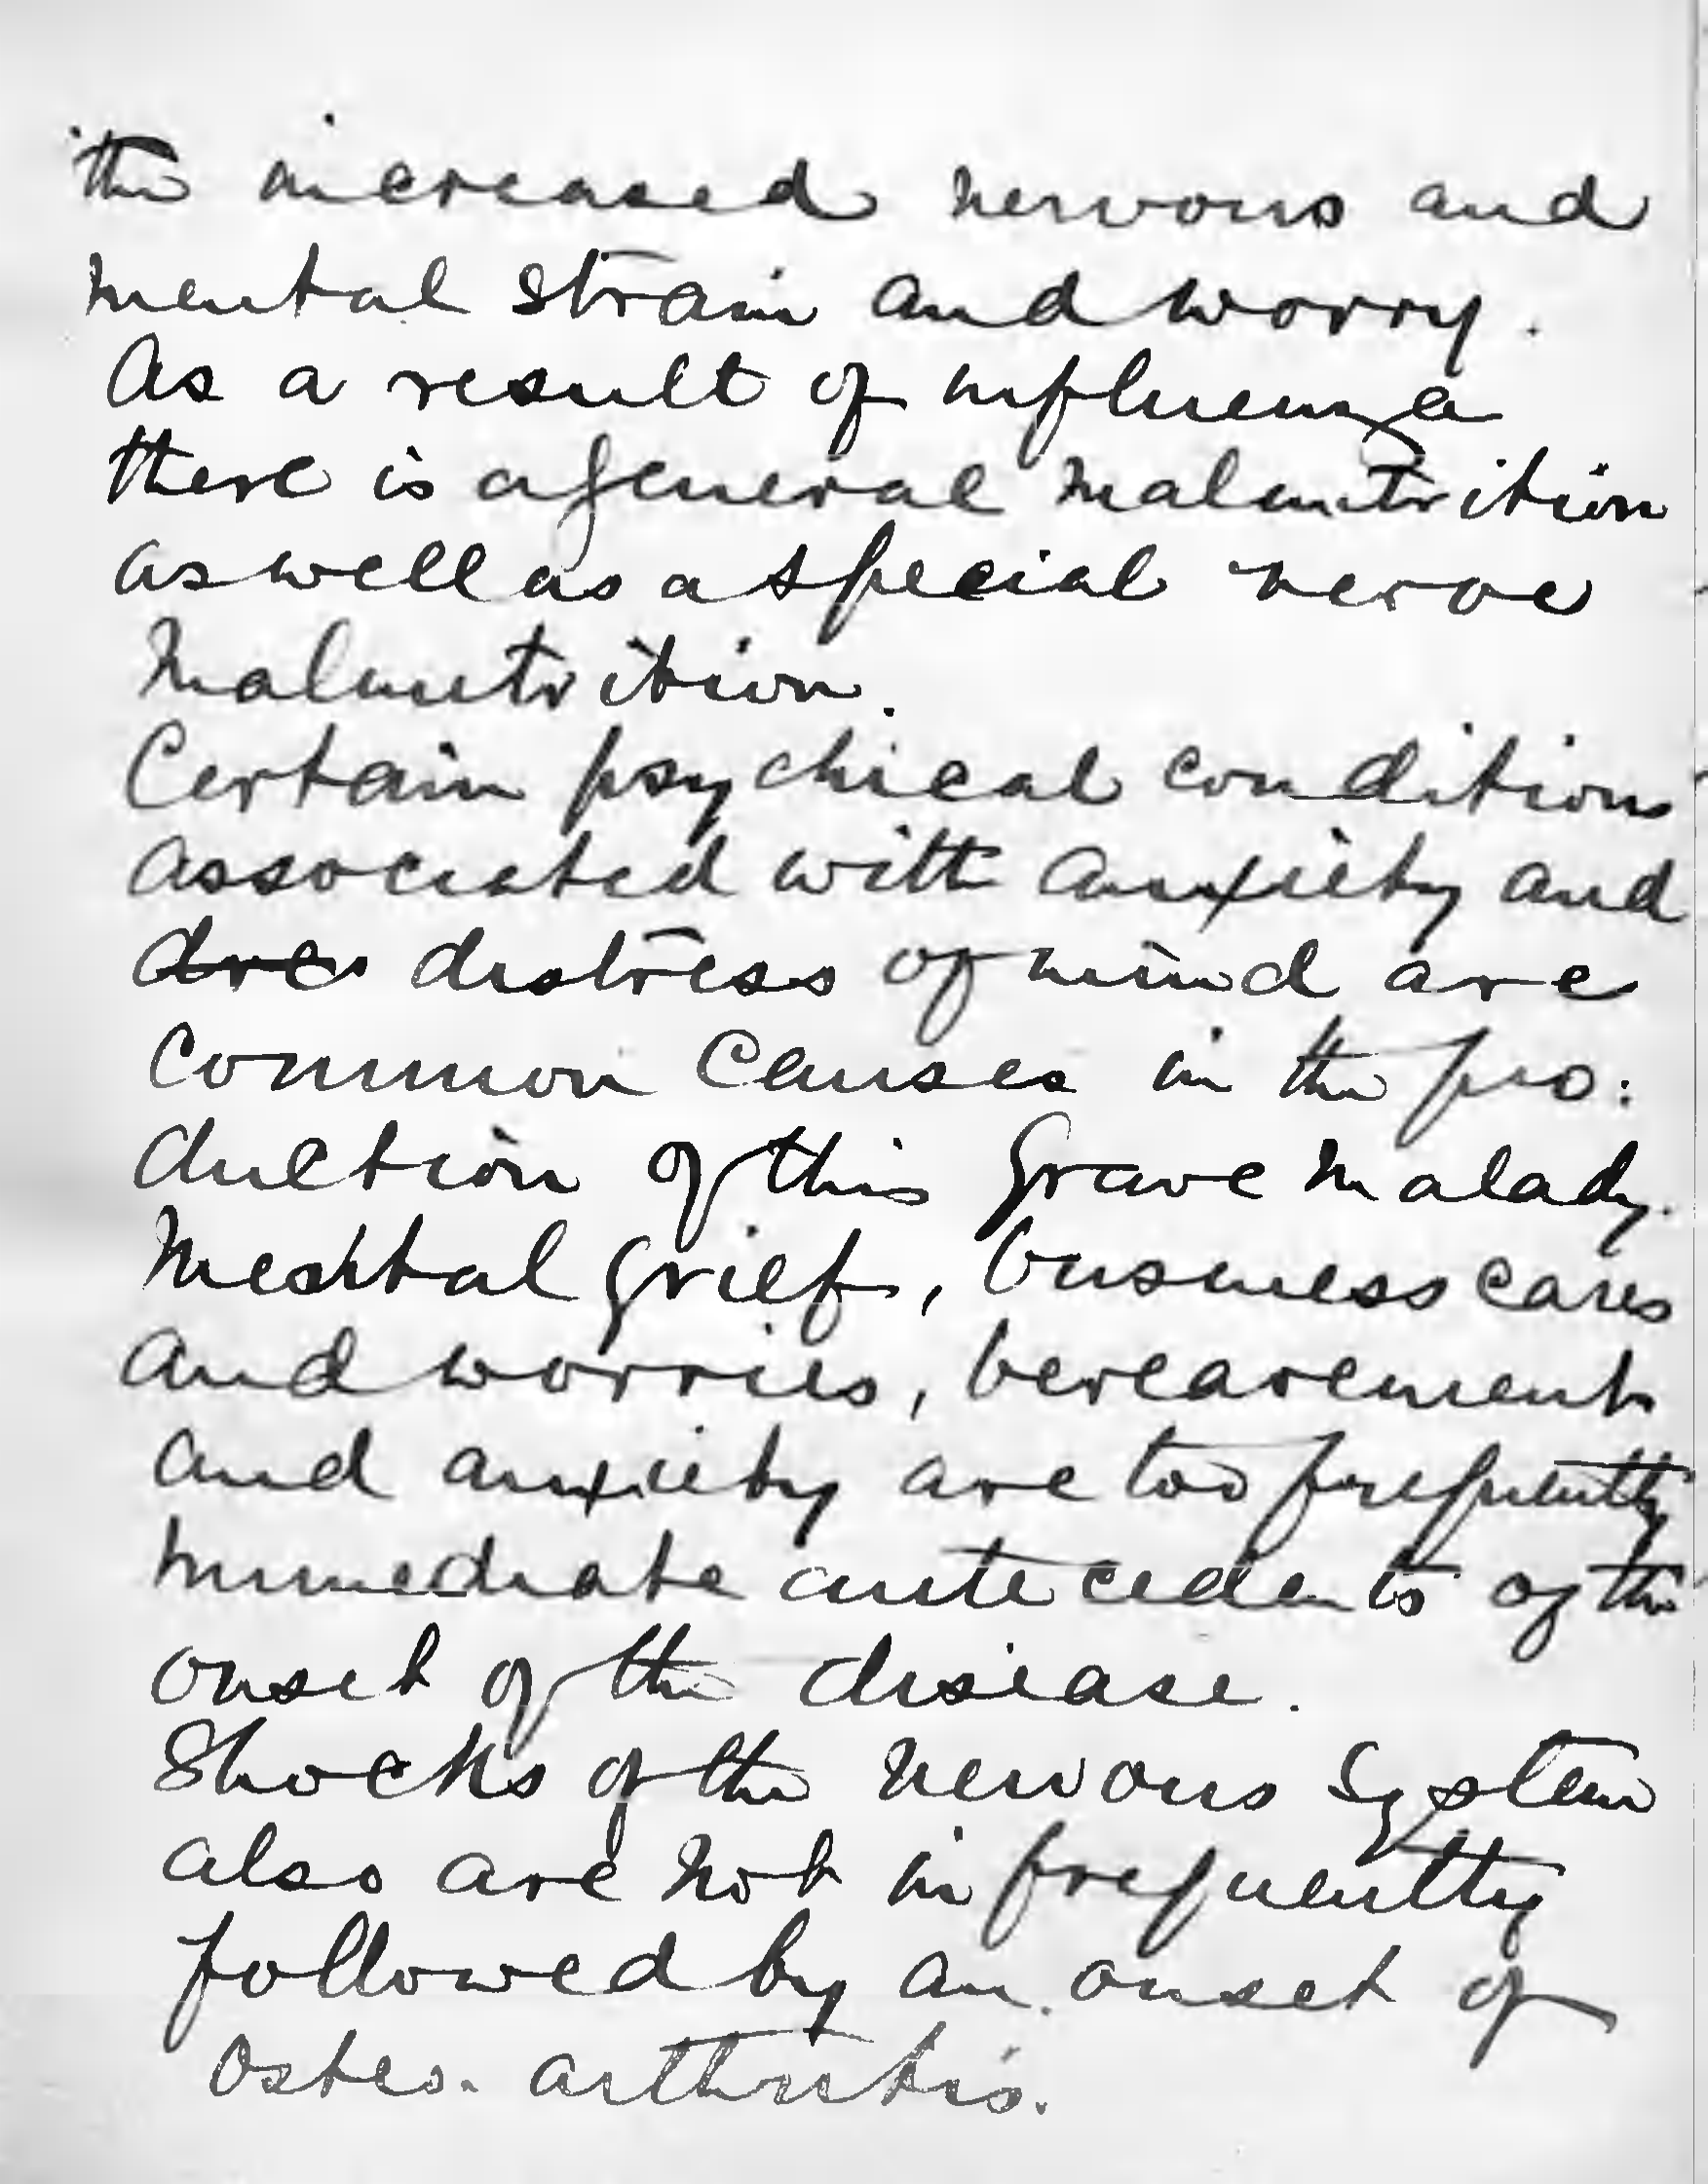 the increased nervous and
mental strain and worry.
As a result of influenza
there is a general malnutrition
as well as a special nerve
malnutrition.
Certain psychical conditions
associated with anxiety and
dre distress of mind are
common causes in the pro:
duction of this grave malady.
Mental grief, business cares
and worries, bereavement
and anxiety are too frequently
immediate antecedents of the
onset of the disease.
Shocks of the nervous system
also are not infrequently
followed by an onset of
Osteo-arthritis.